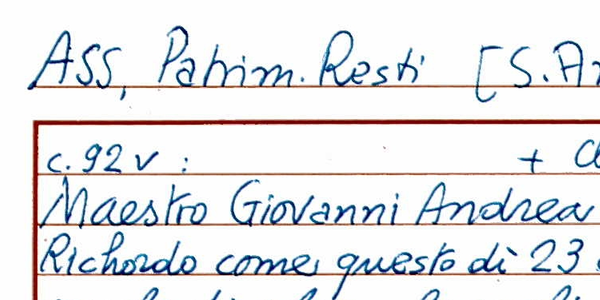 ASS, Patrim. Resti [S.An
c. 92 v : +
Maestro Giovanni Andrea
Richordo come questo dì 23